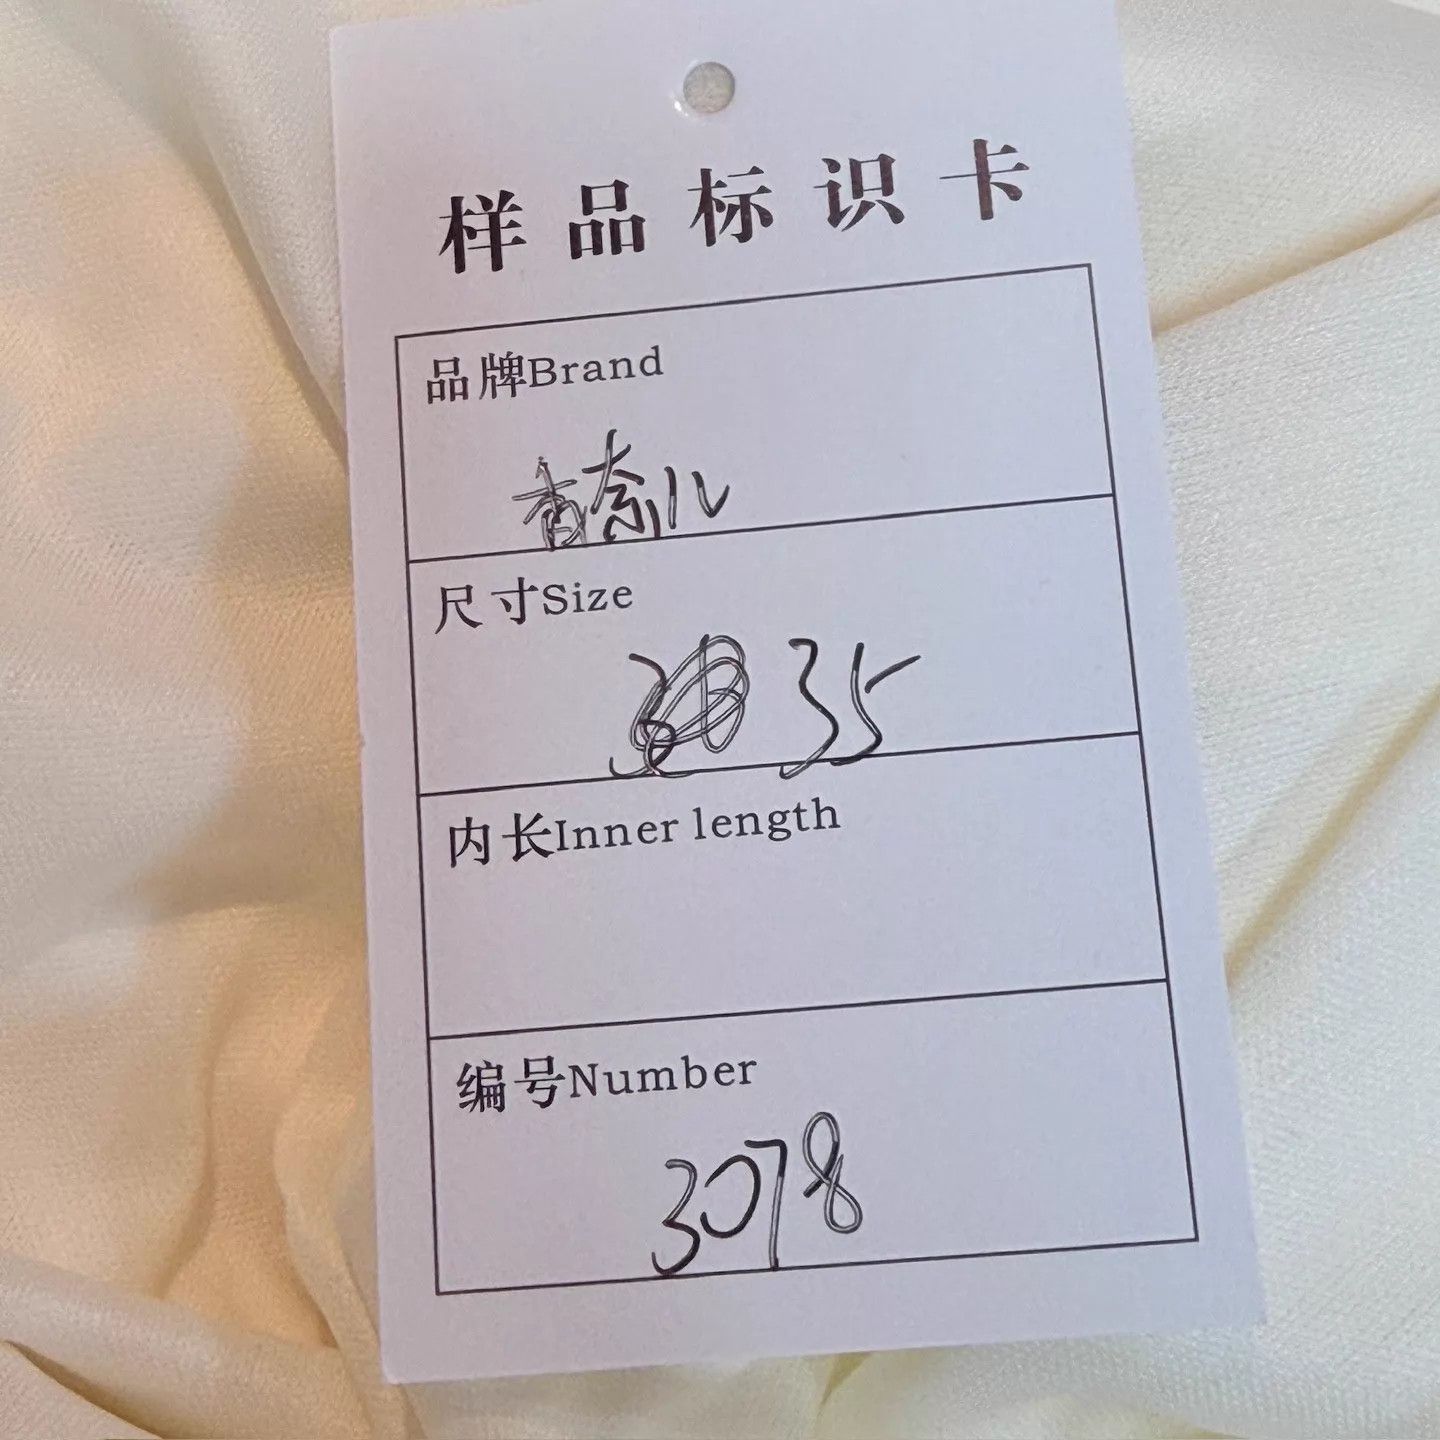 样品标识卡
品牌Brand
香奈儿
尺寸Size
35
内长Inner length
编号Number
3078